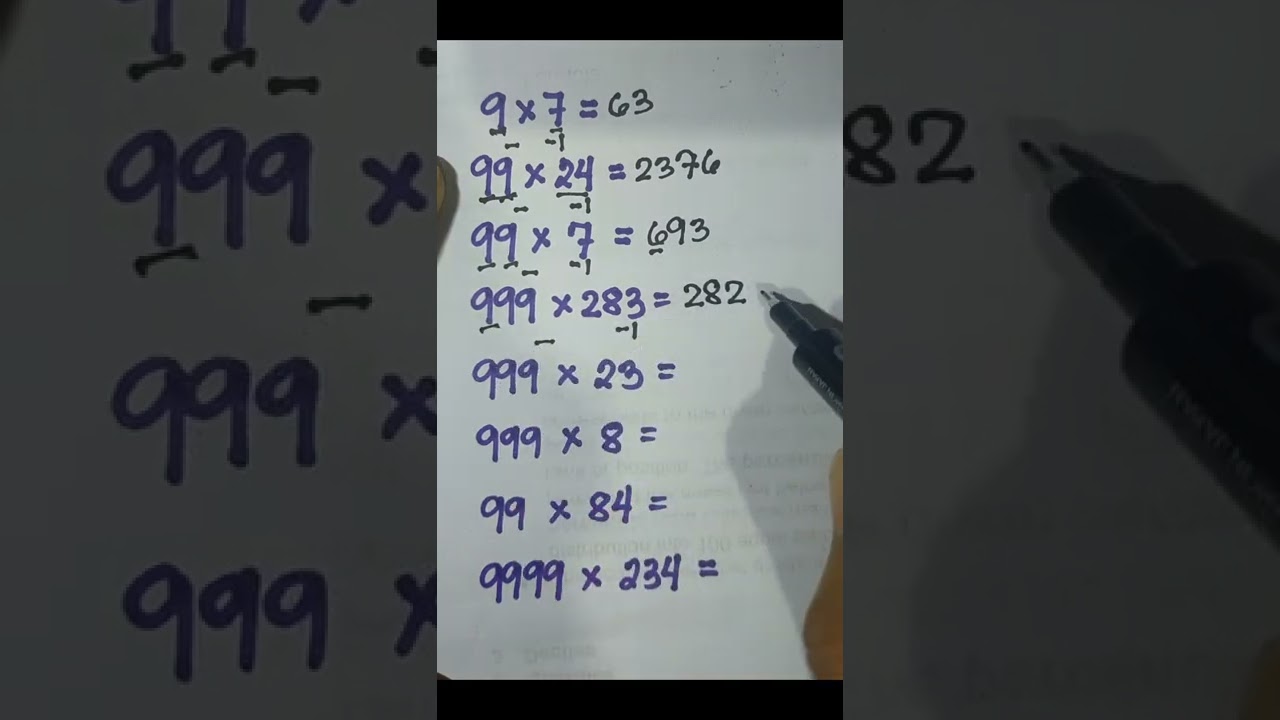 9 × 7 = 63
-1
99 × 24 = 2376
-1
99 × 7 = 693
-1
999 × 283 = 282
-1
999 × 23 =
999 × 8 =
99 × 84 =
9999 × 234 =